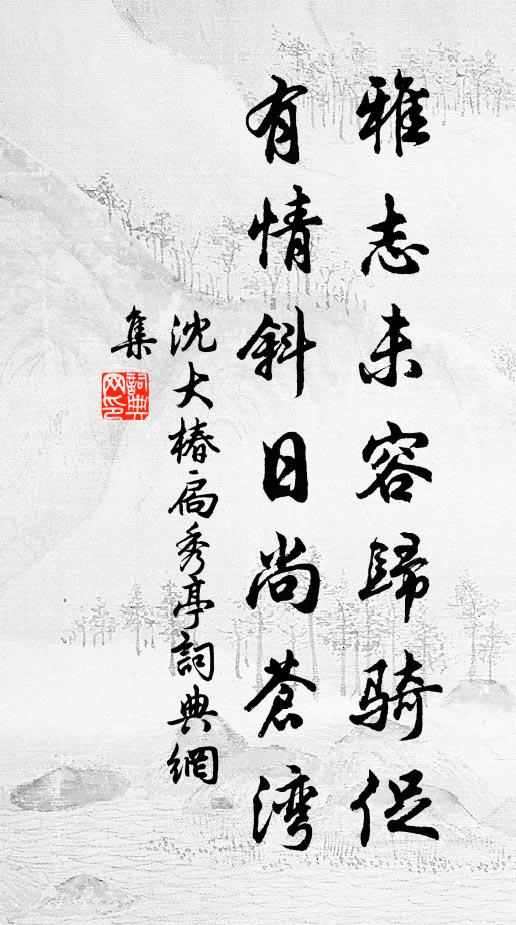 雅志未容歸騎促
有情斜日尚蒼灣
沈大椿扁秀亭詞典網
集
詞典
网印